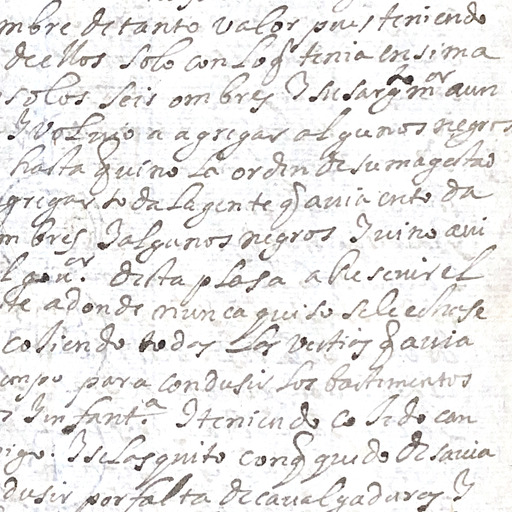 mbre de tanto valor pues teniendo
de ellos solo con lo q̃ tenia ensima
solos seis ombres Y su sargto mor aun
Y volvio a agregar algunos negros
hasta q̃ vino la orden de su magestad
gregar toda la gente q̃ avia en to da
mbres Y algunos negros Y vino aui
l gour. desta plasa a Resevir el
te adonde nunca quiso se le echase
cojiendo todas las vestias q̃ avia
empo para condusir los bastimentos
Ynfanta. Y teniendo cojido can
igo. Y se las quito con q̃ quedo desavia
dusir por falta de cavalgadures Y